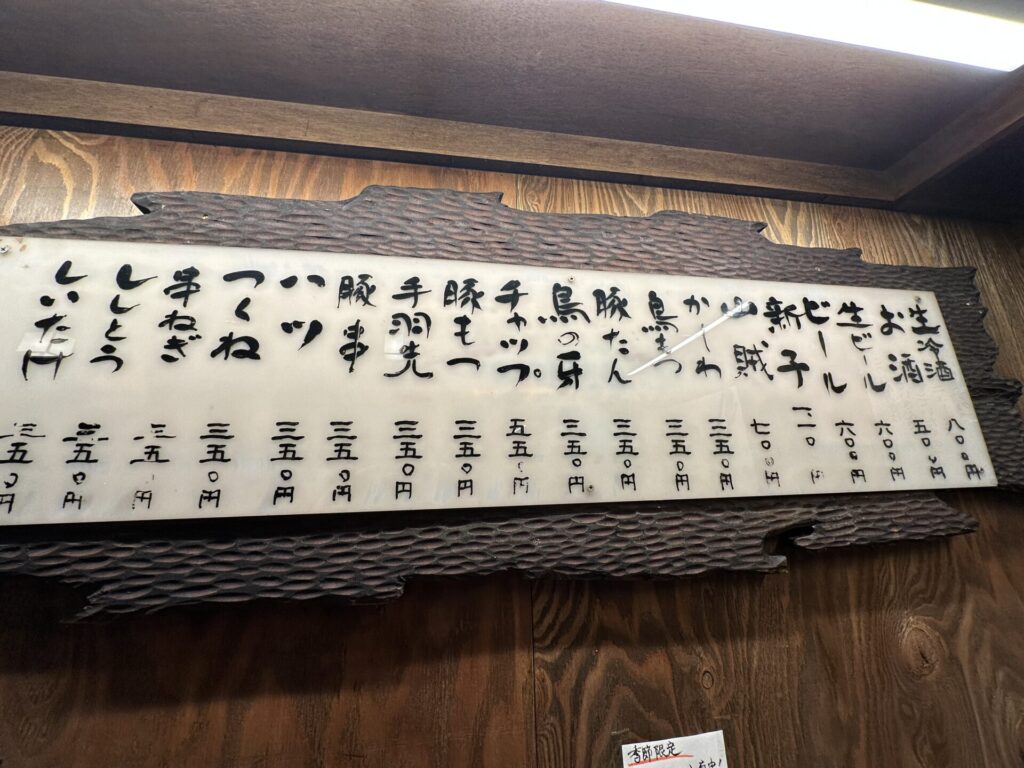 生冷酒 八〇〇円
お酒 五〇〇円
生ビール 六〇〇円
ビール 六〇〇円
新子
山賊 七〇〇円
かしわ 三五〇円
鳥もつ 三五〇円
豚たん 三五〇円
鳥の牙 三五〇円
チャップ 五五〇円
豚もつ 三五〇円
手羽先 三五〇円
豚串 三五〇円
ハツ 三五〇円
つくね 三五〇円
串ねぎ 三五〇円
ししとう 三五〇円
しいたけ 三五〇円
季節限定